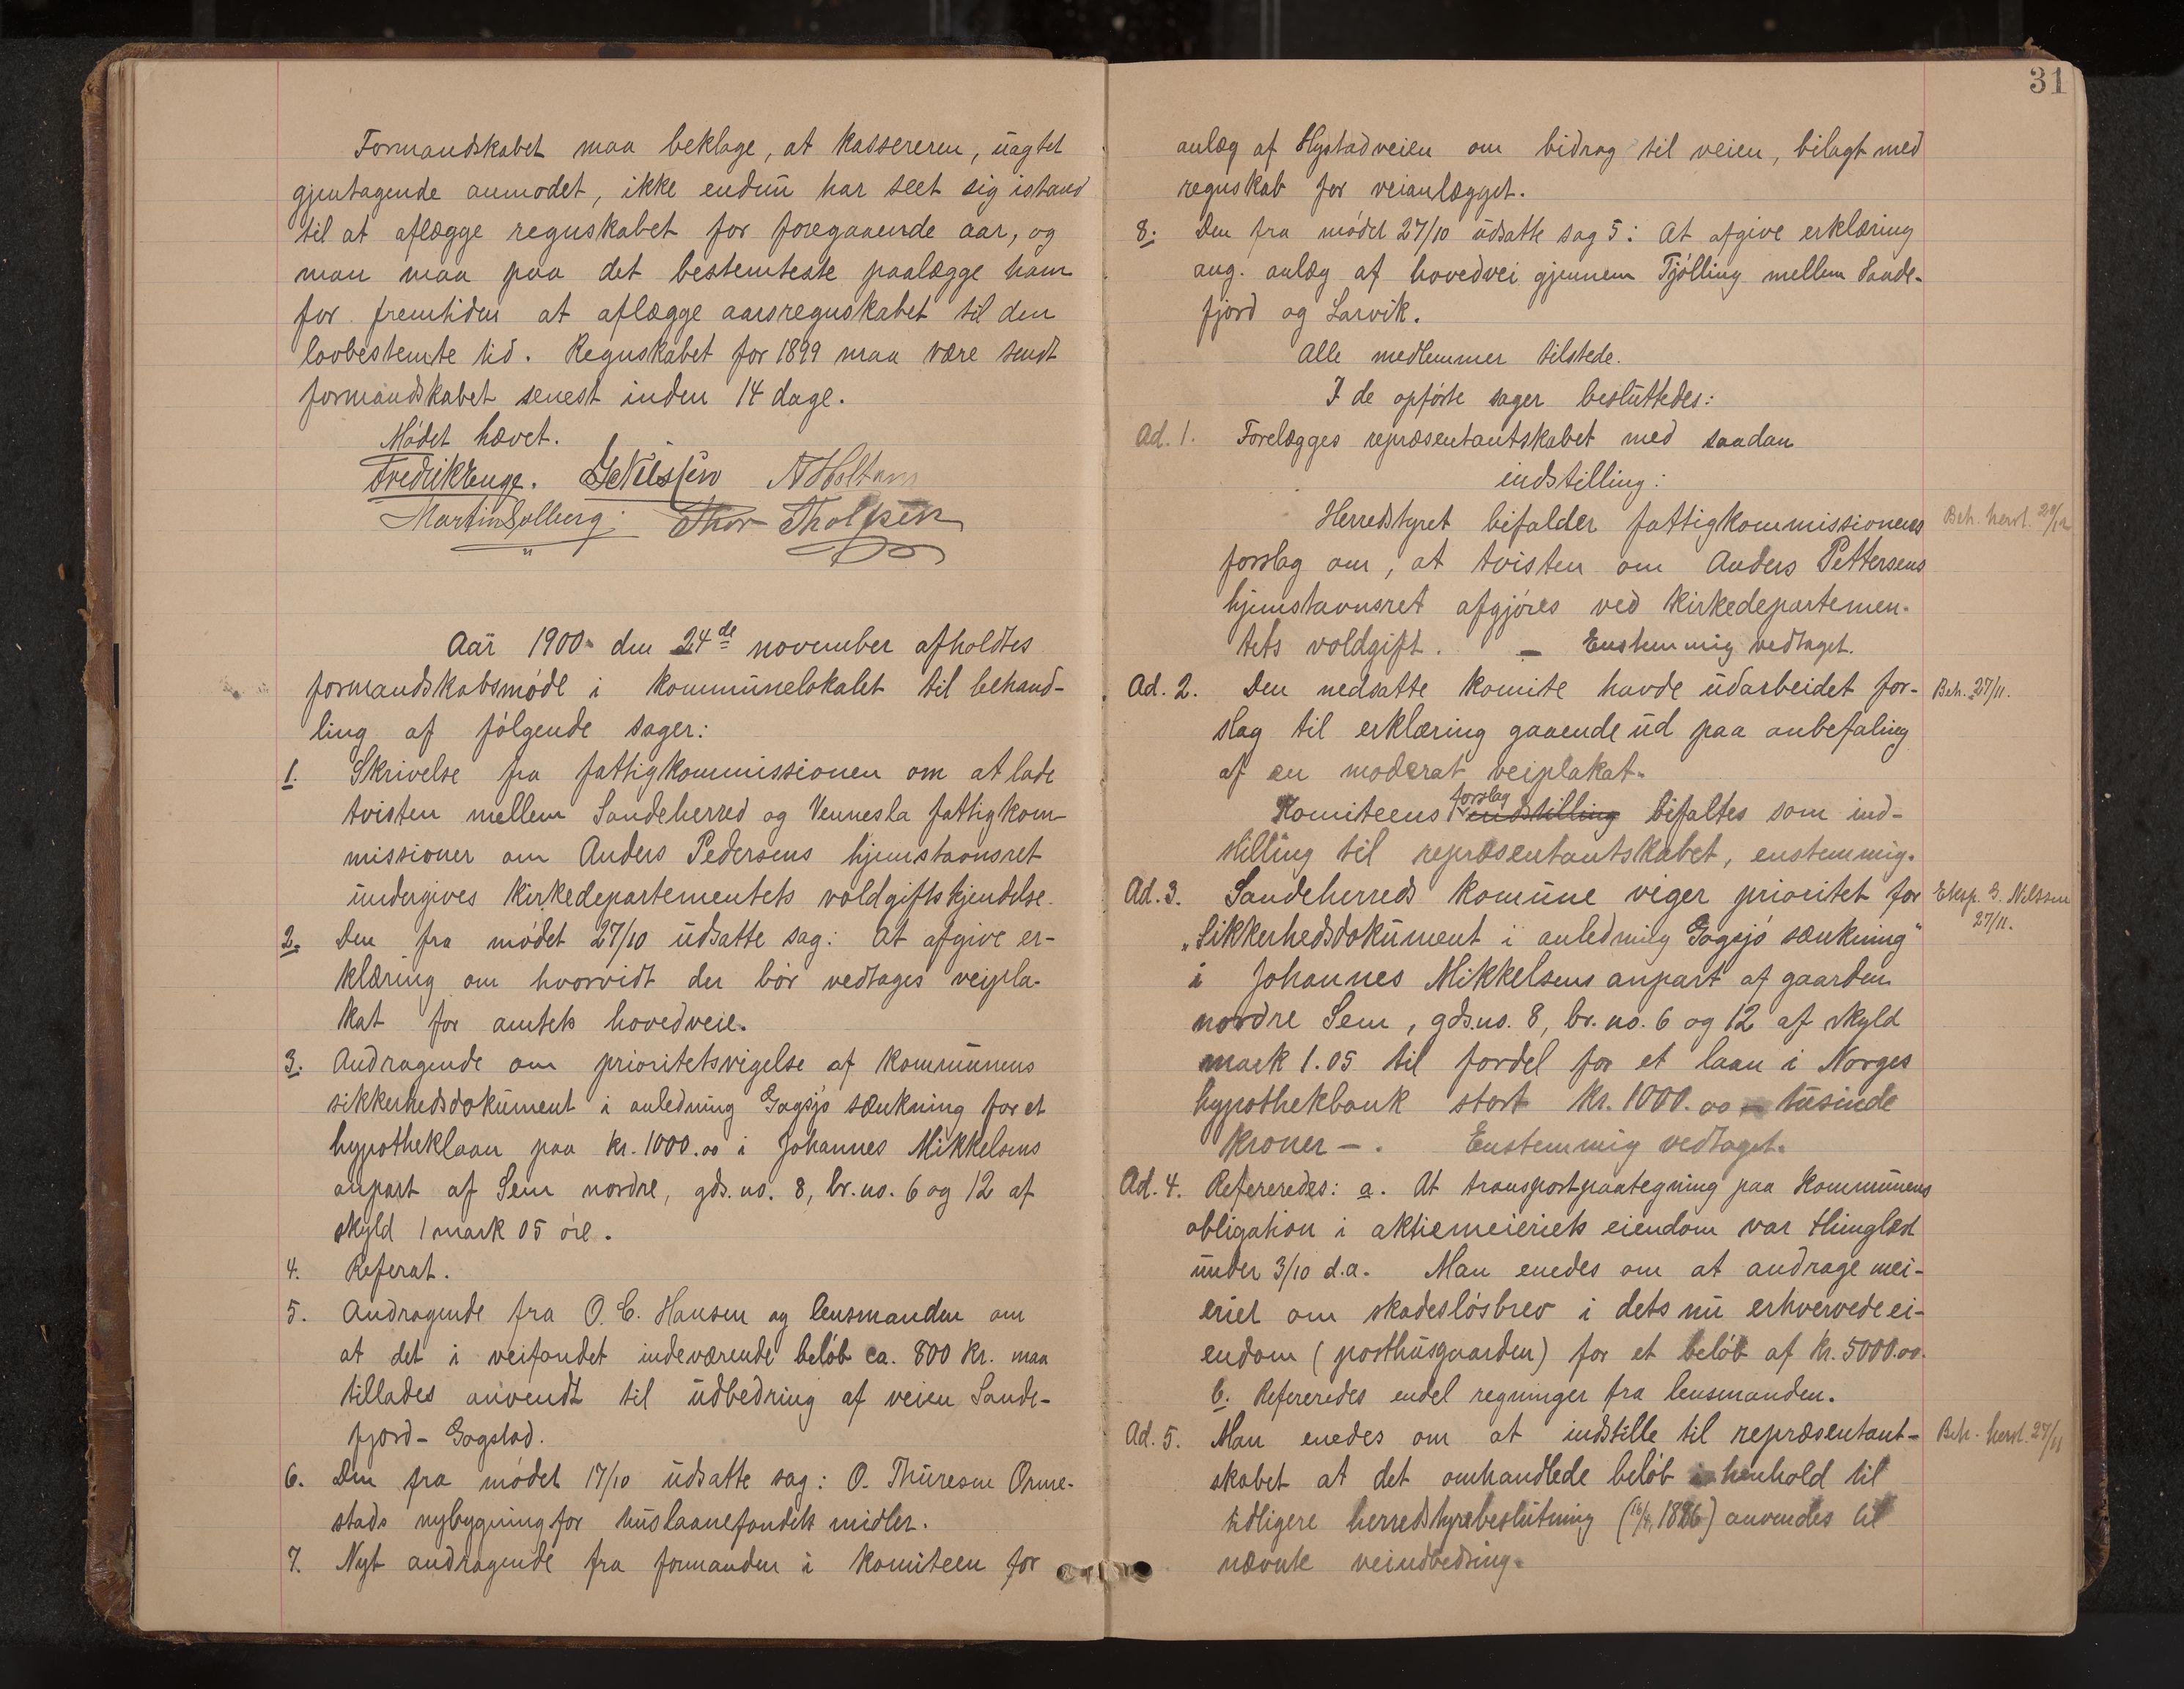 Formandskabet maa beklage, at kassereren, uagtet
gjentagende anmodet, ikke endnu har seet sig istand
til at aflægge regnskabet for foregaaende aar, og
man maa paa det bestemteste paalægge ham
for fremtiden at aflægge aarsregnskabet til den
lovbestemte tid. Regnskabet for 1899 maa være sendt
formandskabet senest inden 14 dage.
Mødet hævet.
Fredrik Enge. G Nilssen N Holtan
Martin Solberg. Thor Tholfsen
Aar 1900 den 24de november afholdtes
formandskabsmøde i kommunelokalet til behand-
ling af følgende sager:
1. Skrivelse fra fattigkommissionen om at lade
tvisten mellem Sandeherred og Vennesla fattigkom-
missioner om Anders Pedersens hjemstavnsret
undergives kirkedepartementets voldgiftskjendelse.
2. Den fra mødet 27/10 udsatte sag: At afgive er-
klæring om hvorvidt der bør vedtages veipla-
kat for amtets hovedveie.
3. Andragende om prioritetsvigelse af kommunens
sikkerhedsdokument i anledning Gogsjø sænkning for et
hypotheklaan paa kr. 1000.00 i Johannes Mikkelsens
anpart af Sem nordre, gds. no. 8, br. no. 6 og 12 af
skyld 1 mark 05 øre.
4. Referat.
5. Andragende fra O. C. Hansen og lensmanden om
at det i veifondet indeværende beløb ca. 800 kr. maa
tillades anvendt til udbedring af veien Sande-
fjord-Gogstad.
6. Den fra mødet 17/10 udsatte sag: O. Thuresen Orme-
stads nybygning for huslaanefondets midler.
7. Nyt andragende fra formanden i komiteen for
31
anlæg af Hystadveien om bidrag til veien, bilagt med
regnskab for veianlægget.
8. Den fra mødet 27/10 udsatte sag 5: At afgive erklæring
ang. anlæg af hovedvei gjennem Tjølling mellem Sande-
fjord og Larvik.
Alle medlemmer tilstede.
I de opførte sager besluttedes:
Ad. 1. Forelægges repræsentantskabet med saadan
indstilling:
Herredstyret bifalder fattigkommissionens
Beh. herst. 28/12
forslag om, at tvisten om Anders Pettersens
hjemstavnsret afgjøres ved kirkedepartemen-
tets voldgift. – Enstemmig vedtaget.
Ad. 2. Den nedsatte komite havde udarbeidet for-
Beh. 27/11.
slag til erklæring gaaende ud paa anbefaling
af en moderat veiplakat.
Komiteens forslag indstilling bifaltes som ind-
stilling til repræsentantskabet, enstemmig.
Ad. 3. Sandeherreds komune viger prioritet for
Eksp. G. Nilssen
27/11.
"Sikkerhedsdokument i anledning Gogsjø sænkning"
i Johannes Mikkelsens anpart af gaarden
nordre Sem, gds. no. 8, br. no. 6 og 12 af skyld
mark 1.05 til fordel for et laan i Norges
hypothekbank stort kr. 1000.00 – tusinde
kroner –. Enstemmig vedtaget.
Ad. 4. Refereredes: a. At transportpaategning paa kommunens
obligation i aktiemeieriets eiendom var thinglæst
under 3/10 d.a. Man enedes om at andrage mei-
eriet om skadesløsbrev i dets nu erhvervede ei-
endom (posthusgaarden) for et beløb af kr. 5000.00.
b. Refereredes endel regninger fra lensmanden.
Ad. 5. Man enedes om at indstille til repræsentant-
Beh. herst. 27/11
skabet at det omhandlede beløb i henhold til
tidligere herredstyrebeslutning ( 1886) anvendes til
nævnte veiudbedring.